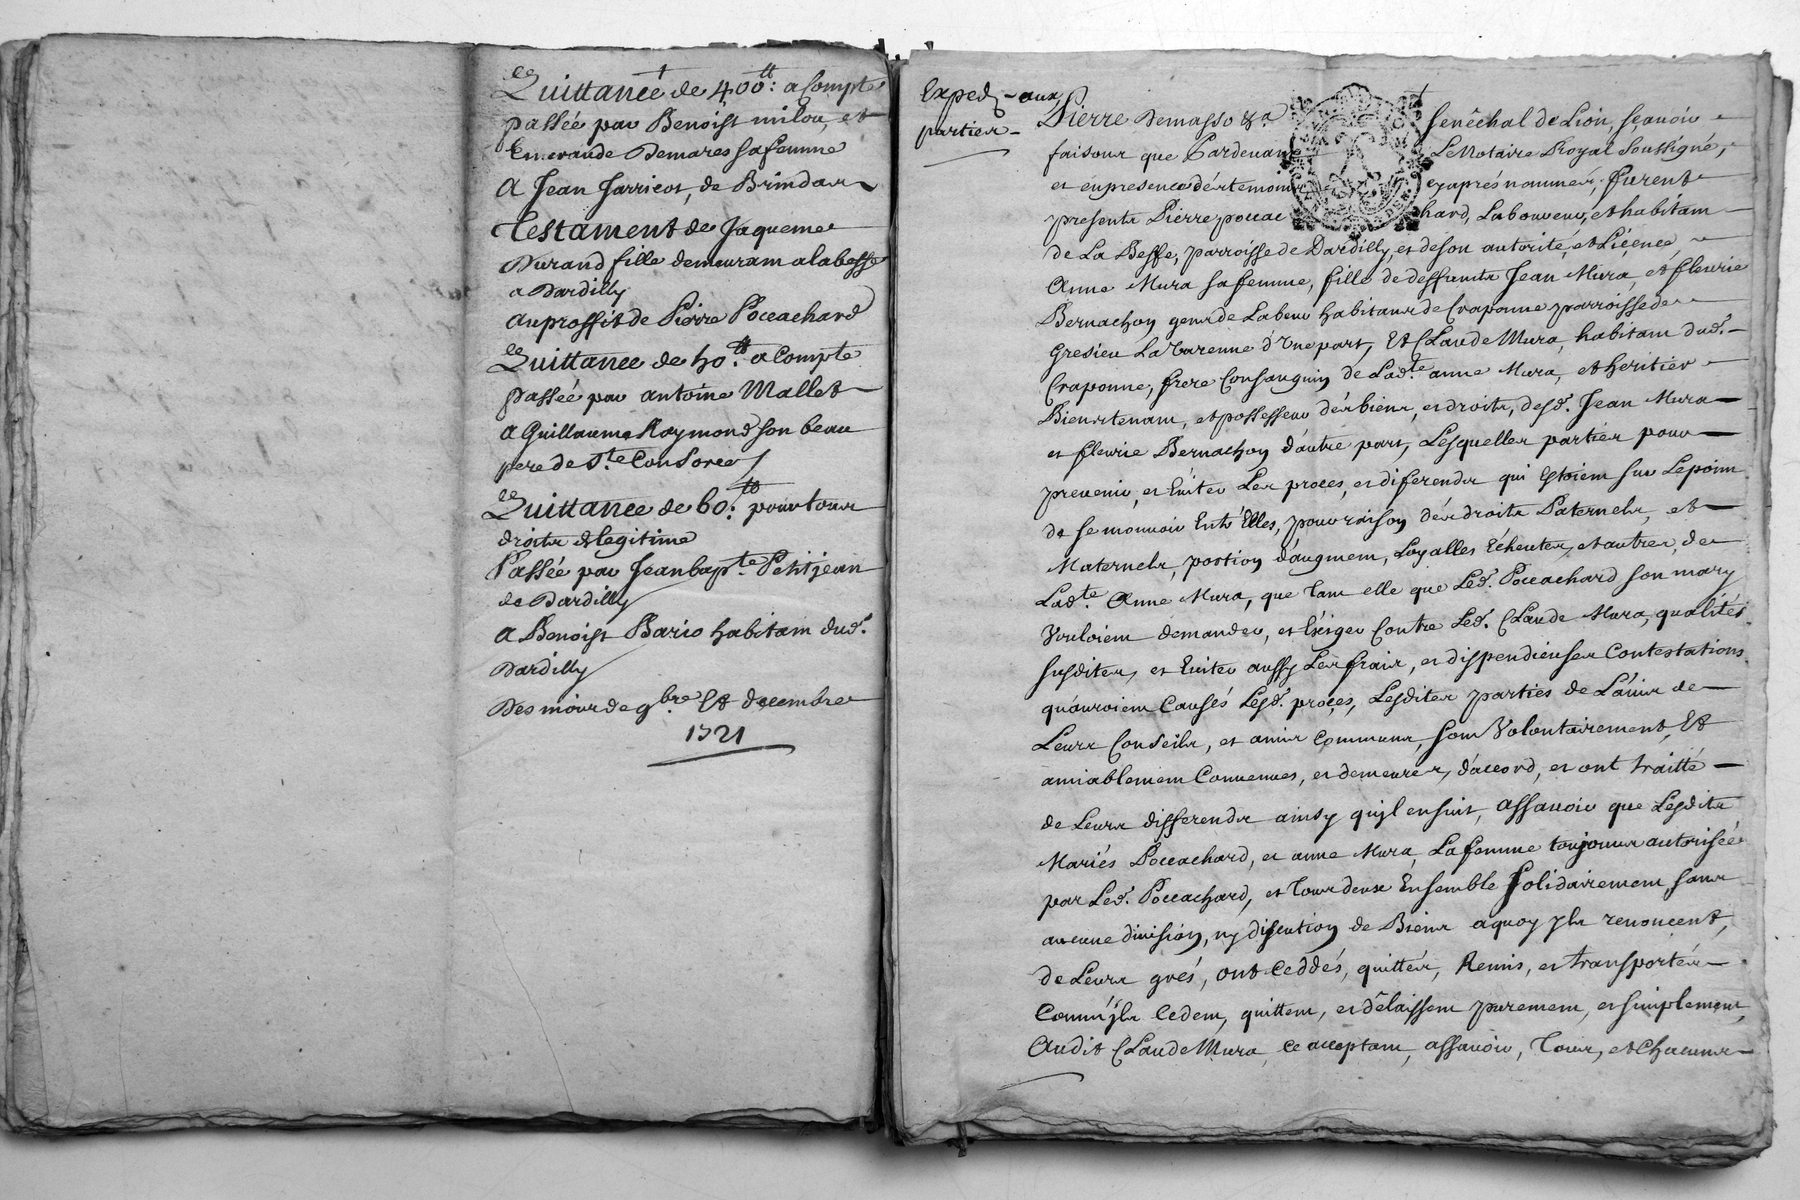 Quittance de 400ᵗᵗ: a Compte
passée par Benoist milou, et
Emeraude Demares sa femme
A Jean Jarricot, de Brindas
Testament de Jaqueme
Durand fille demeurant a la besse
a Dardilly
au proffit de Pierre Poccachard
Quittance de 40ᵗᵗ a Compte
passée par antoine Mallet
A Guillaume Raymond son beau
pere de Sᵗᵉ Consorce
Quittance de 60ᵗᵗ: pour tous
droits et legitime
Passée par Jean bapᵗᵉ Petitjean
de Dardilly
A Benoist Bario habitant dudᵗ.
Dardilly
Des mois de 9bre Et decembre
1721
Exped. aux
parties
Pierre Demasso &a Senêchal de Lion, sçavoir
faisons que Pardevant Le Notaire Royal Soussigné,
et en presence dés temoins cy aprés nommes. furent
presents Pierre poccachard, Laboureur, et habitant
de La Besse, parroisse de Dardilly, et de son autorité, et Liçence,
Anne Mura sa femme, fille de deffunts Jean Mura, et fleurie
Bernachon gens de Labeur habitans de Craponne parroisse de
Gresieu La Varenne d'Une part, Et Claude Mura, habitant dudᵗ.
Craponne, frere Consanguin de Ladᵗᵉ anne Mura, et heritier
Bienstenant, et possesseur dés biens, et droits, desdᵗ. Jean Mura
et fleurie Bernachon d'autre part, Lesquelles parties pour
prevenir, et Eviter Les proces, et diferends qui Estoient sur Le point
de se mouvoir Entr'Elles, pour raison dés droits Paternels, et
Maternels, portion d'augment, Loyalles Echeutes, et autres, de
Ladᵗᵉ. Anne Mura, que tant elle que Ledᵗ. Poccachard son mary
Vouloient demander, et Exiger Contre Ledᵗ. Claude Mura, qualités
susdites, et Eviter aussy Les frais, et dispendieuses Contestations
qu'auroient Causés Lesdᵗ. proçes, Lesdites parties de L'avis de
Leurs Conseils, et amis Communs, sont Volontairement, Et
amiablement Convenues, et demeures, d'accord, et ont traitté
de Leurs differends ainsy qu'jl ensuit, assavoir que Lesdits
Mariés Poccachard, et anne Mura, La femme toujours autorisée
par Ledᵗ. Poccachard, et tous deux Ensemble Solidairement, sans
aucune division, ny discution de Biens a quoy jls renoncent,
de Leurs grés, ont Ceddés, quittés, Remis, et transportés
Comm'jls Cedent, quittent, et délaissent purement, et simplement,
Audit Claude Mura, ce acceptant, assavoir, Tous, et Chacuns